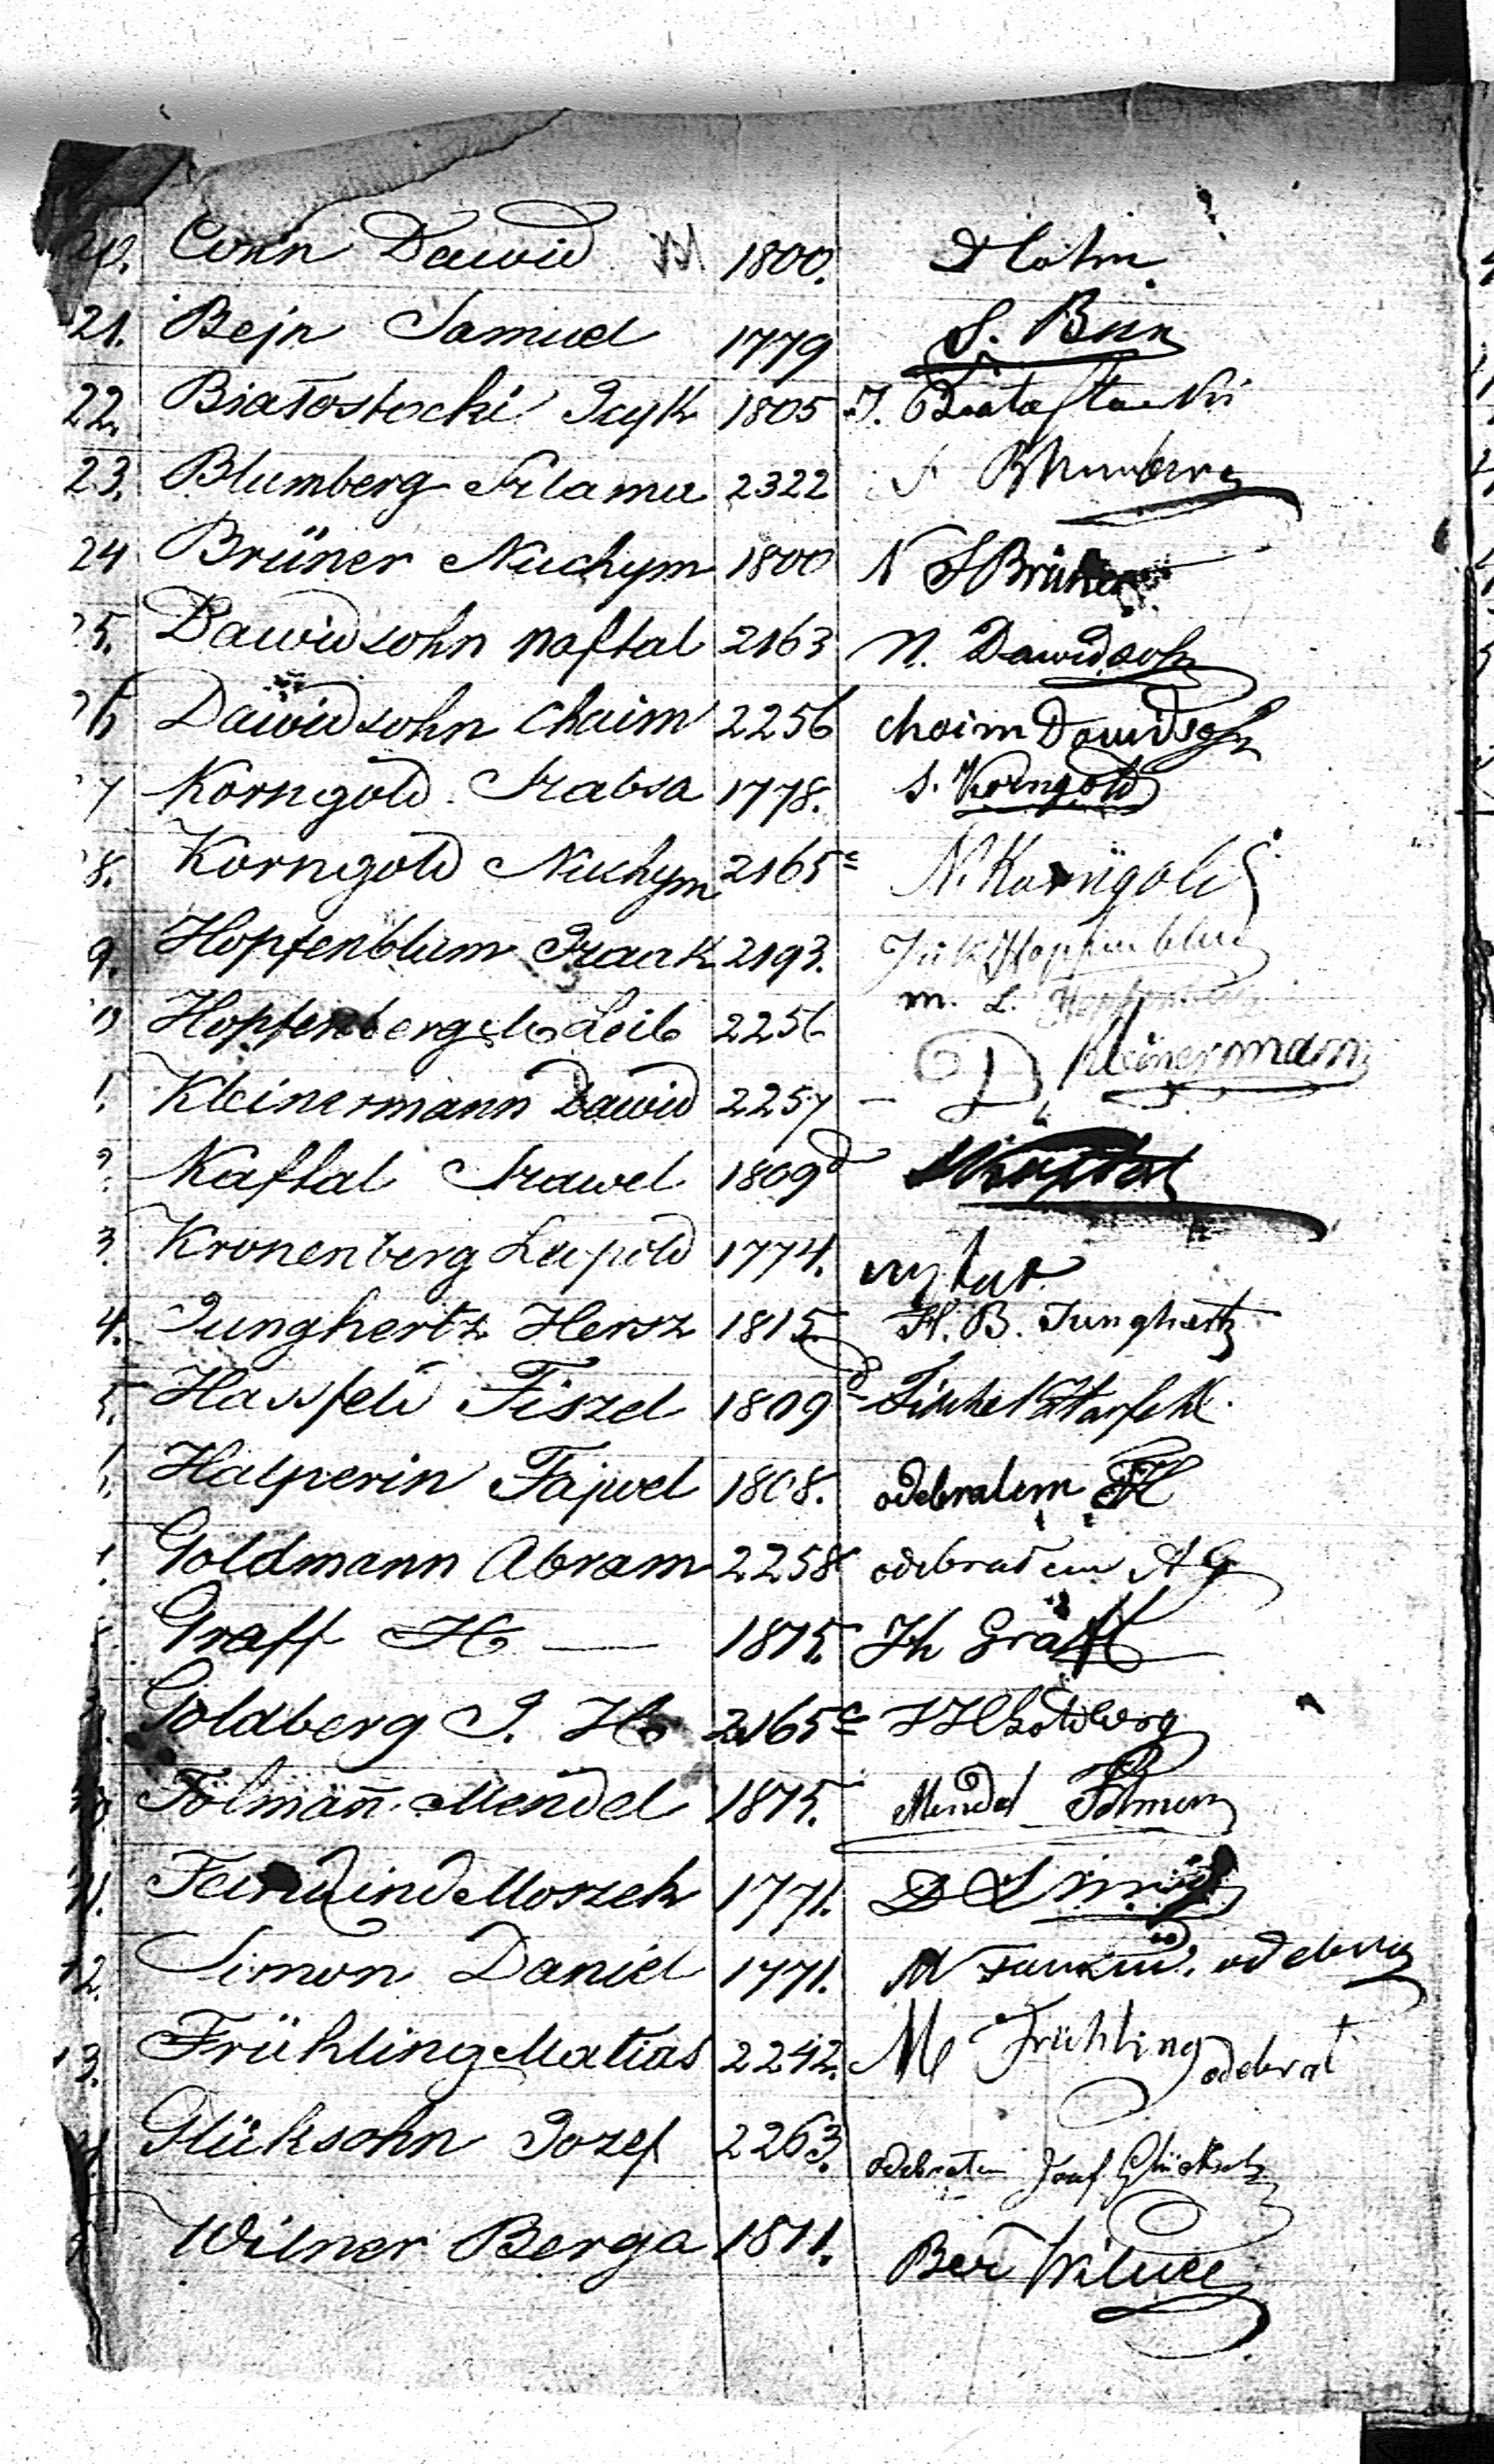 20. Conn Dawid M 1800. D Cohn
21. Bejn Samuel 1779 S. Bein
22. Białostocki Icyk 1805 J.
23. Blumberg 2322 Blumberg
24 Brüner Nuchym 1800 N S Brüner
25. Dawidsohn Naftal 2163 N. Dawidsohn
26 Dawidsohn Chaim 2256 Chaim Dawidsohn
7 Korngold Szabsa 1778. S. Korngold
8. Korngold Nuchym 2165c N. Korngold
9. Hopfenblum Izaak 2193. Hopfenblum
Hopfenberg M Leib 2256 M. L. Hopfenberg
1. Kleinermann Dawid 2257 – D Kleinerman
Kaftal Szawel 1809d Kaftal
3. Kronenberg Leopold 1774.
4. Junghertz Hersz 1815. H. B. Junghertz
5. Hassfeld Fiszel 1809d Fischel Hasfeld
Halperin Fajwel 1808. odebralem FH
Goldmann Abram 2258 odebrałem A G
Graff H — 1815. Graff
Goldberg I. H 2165c Goldberg
Folmañ Mendel 1815. Mendel Folman
41. Moszek 1771. D Simon
42. Simon Daniel 1771. M
43. Frühling Matias 2242. M Frühling odebrał
Glüksohn Jozef 2263. odebrałem Josef Glücksohn
Wilner Berga 1811. Ber Wilner